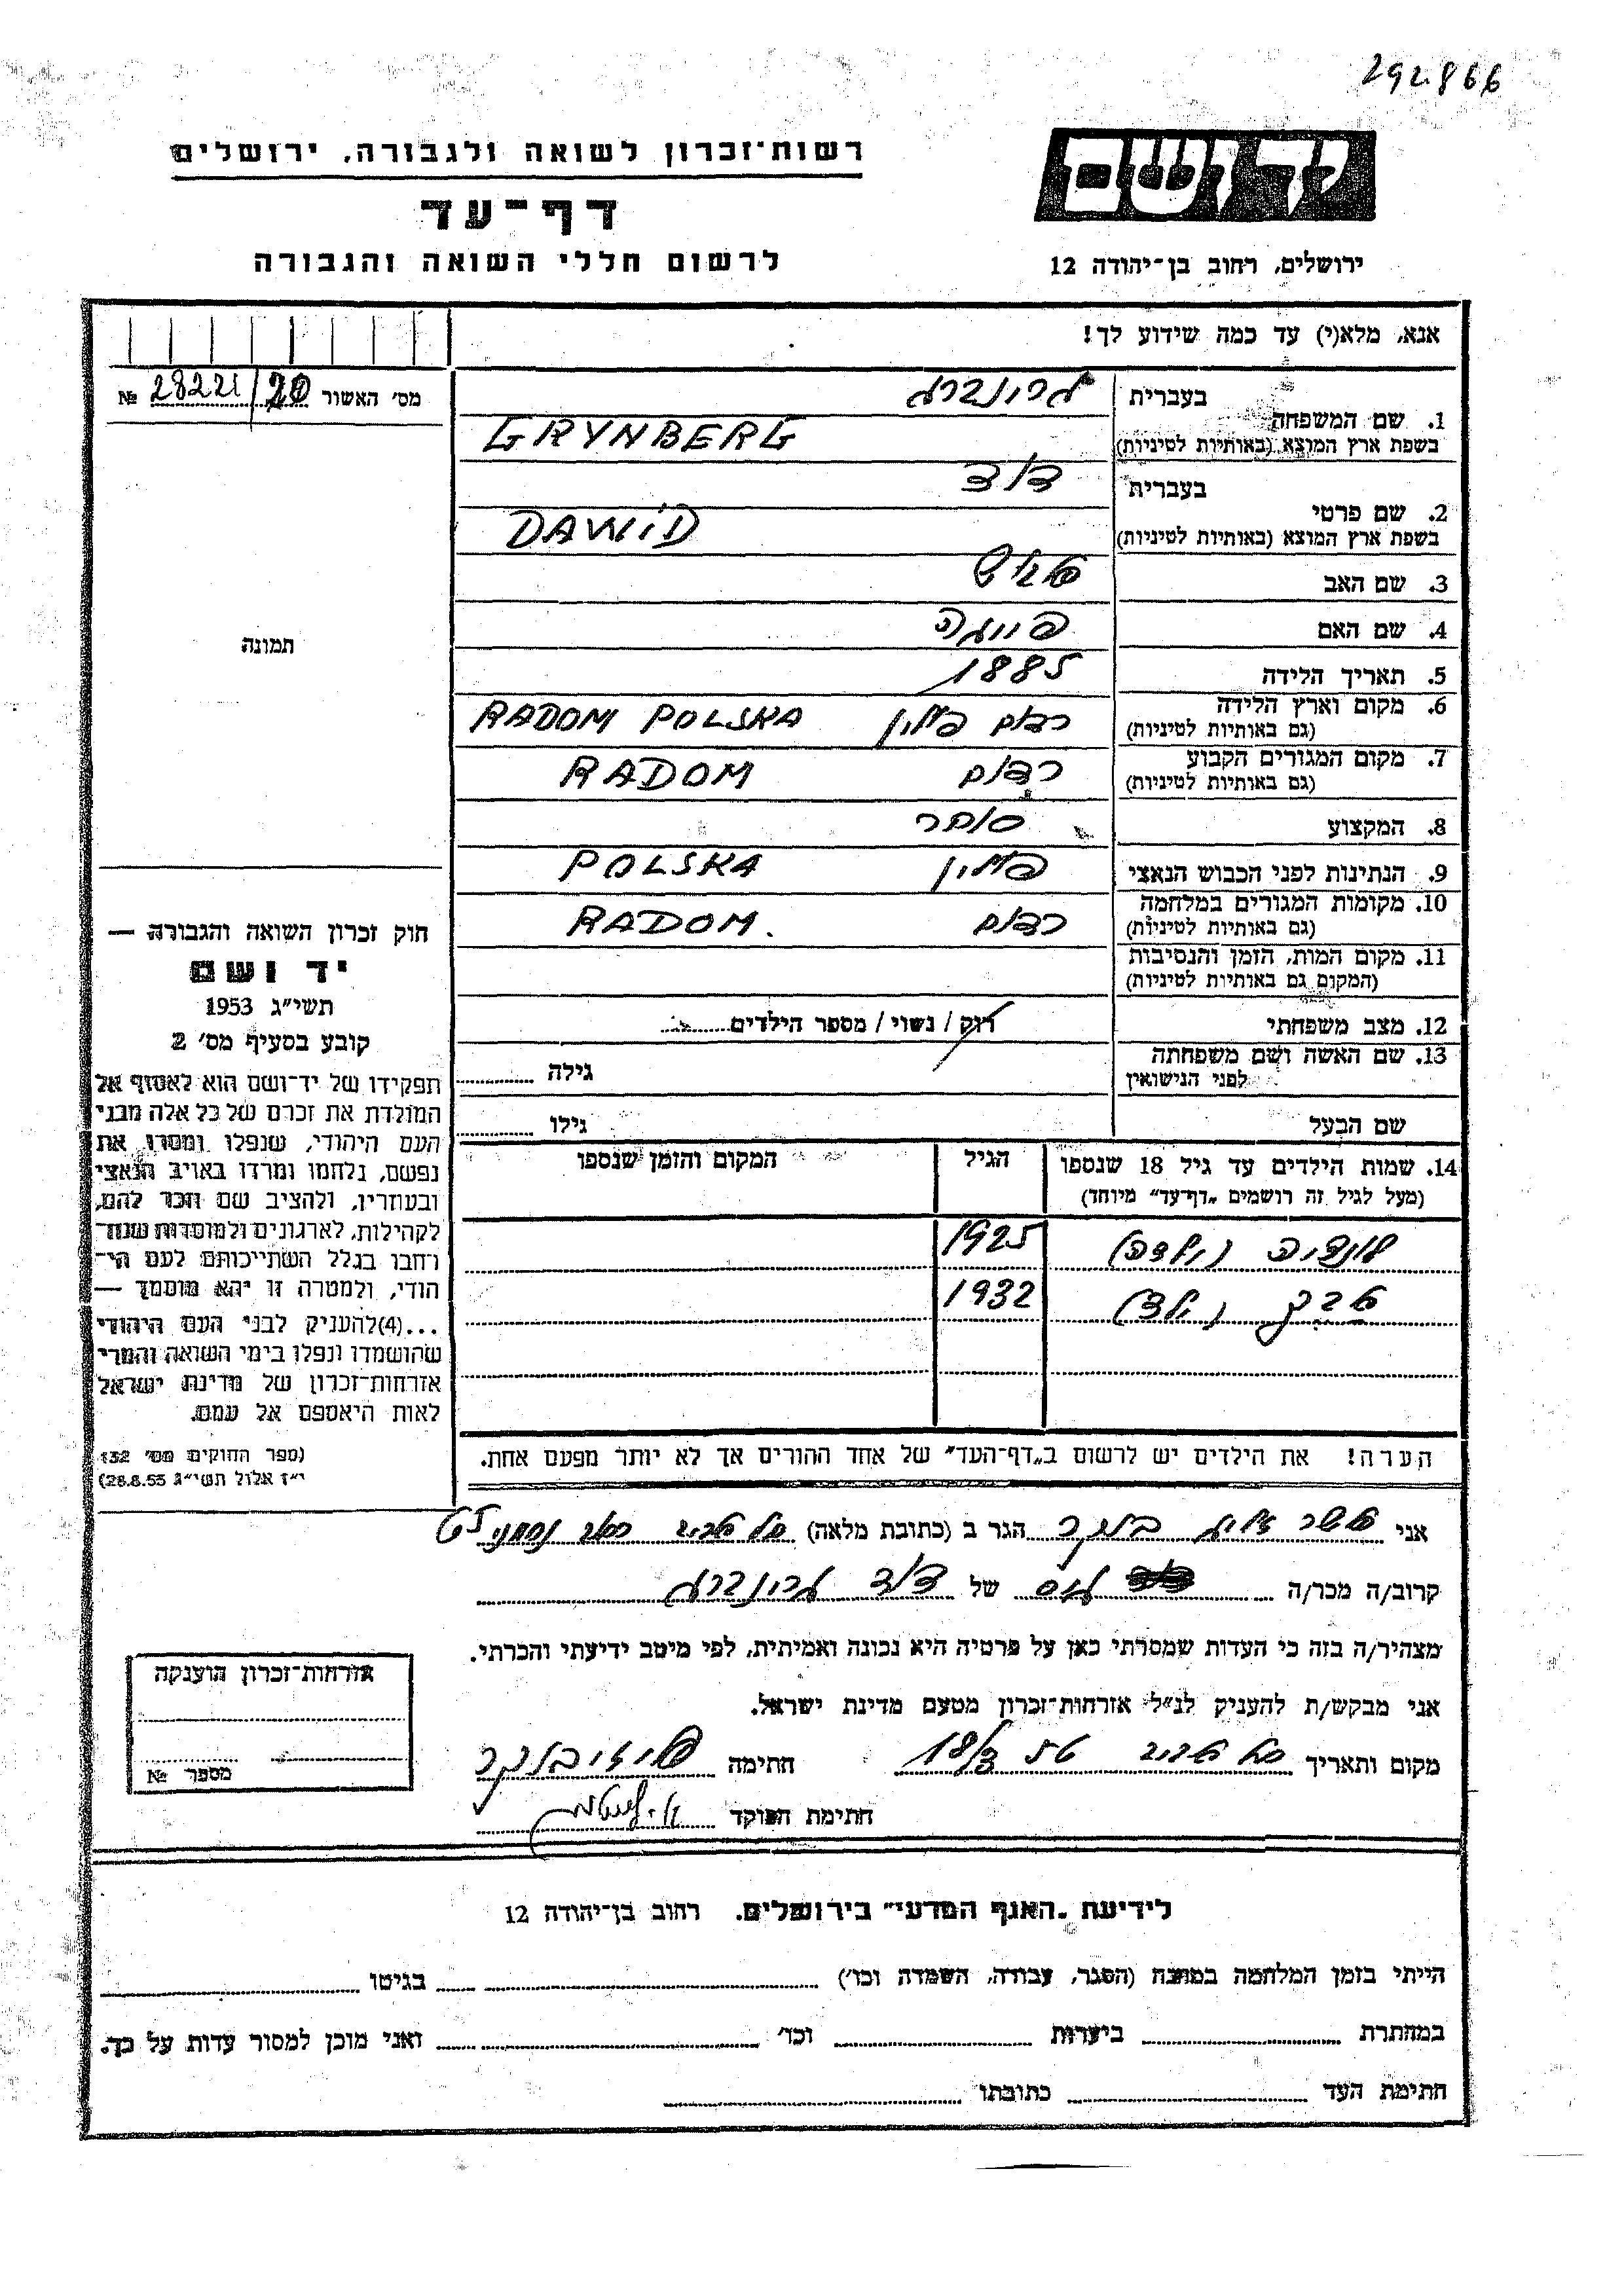 292866
יד ושם
ירושלים, רחוב בן־יהודה 12
רשות־זכרון לשואה ולגבורה, ירושלים
דף־עד
לרשום חללי השואה והגבורה
אנא, מלא(י) עד כמה שידוע לך!
מס׳ האשור 28221/20 №
בעברית גרונברג
1. שם המשפחה
בשפת ארץ המוצא (באותיות לטיניות) GRYNBERG
בעברית דוד
2. שם פרטי
בשפת ארץ המוצא (באותיות לטיניות) DAWID
3. שם האב
4. שם האם
5. תאריך הלידה 1885
6. מקום וארץ הלידה רדום פולין RADOM POLSKA
(גם באותיות לטיניות)
7. מקום המגורים הקבוע רדום RADOM
(גם באותיות לטיניות)
8. המקצוע סוחר
9. הנתינות לפני הכבוש הנאצי פולין POLSKA
10. מקומות המגורים במלחמה רדום RADOM.
(גם באותיות לטיניות)
11. מקום המות, הזמן והנסיבות
(המקום גם באותיות לטיניות)
12. מצב משפחתי רווק / נשוי / מספר הילדים
13. שם האשה ושם משפחתה
לפני הנישואין גילה
שם הבעל גילו
14. שמות הילדים עד גיל 18 שנספו הגיל המקום והזמן שנספו
(מעל לגיל זה רושמים „דף־עד״ מיוחד)
(ילדה) 1925
(ילד) 1932
הערה! את הילדים יש לרשום ב„דף־העד״ של אחד ההורים אך לא יותר מפעם אחת.
תמונה
חוק זכרון השואה והגבורה —
יד ושם
תשי״ג 1953
קובע בסעיף מס׳ 2
תפקידו של יד־ושם הוא לאסוף אל
המולדת את זכרם של כל אלה מבני
העם היהודי, שנפלו ומסרו את
נפשם, נלחמו ומרדו באויב הנאצי
ובעוזריו, ולהציב שם וזכר להם,
לקהילות, לארגונים ולמוסדות שנח־
רחבו בגלל השתייכותם לעם הי־
הודי, ולמטרה זו יהא מוסמך —
...(4)להעניק לבני העם היהודי
שהושמדו ונפלו בימי השואה והמרי
אזרחות־זכרון של מדינת ישראל
לאות היאספם אל עמם.
(ספר החוקים מס׳ 132
י״ז אלול תשי״ג 28.8.53)
אני הגר ב (כתובת מלאה) תל אביב
קרוב/ה מכר/ה גיס של דוד גרונברג
מצהיר/ה בזה כי העדות שמסרתי כאן על פרטיה היא נכונה ואמיתית, לפי מיטב ידיעתי והכרתי.
אני מבקש/ת להעניק לנ״ל אזרחות־זכרון מטעם מדינת ישראל.
מקום ותאריך תל אביב חתימה
חתימת הפוקד
אזרחות־זכרון הוענקה
מספר №
לידיעת „האגף המדעי״ בירושלים, רחוב בן־יהודה 12
הייתי בזמן המלחמה במחנה (הסגר, עבודה, השמדה וכו׳) בגיטו
במחתרת ביערות וכו׳ ואני מוכן למסור עדות על כך.
חתימת העד כתובתו